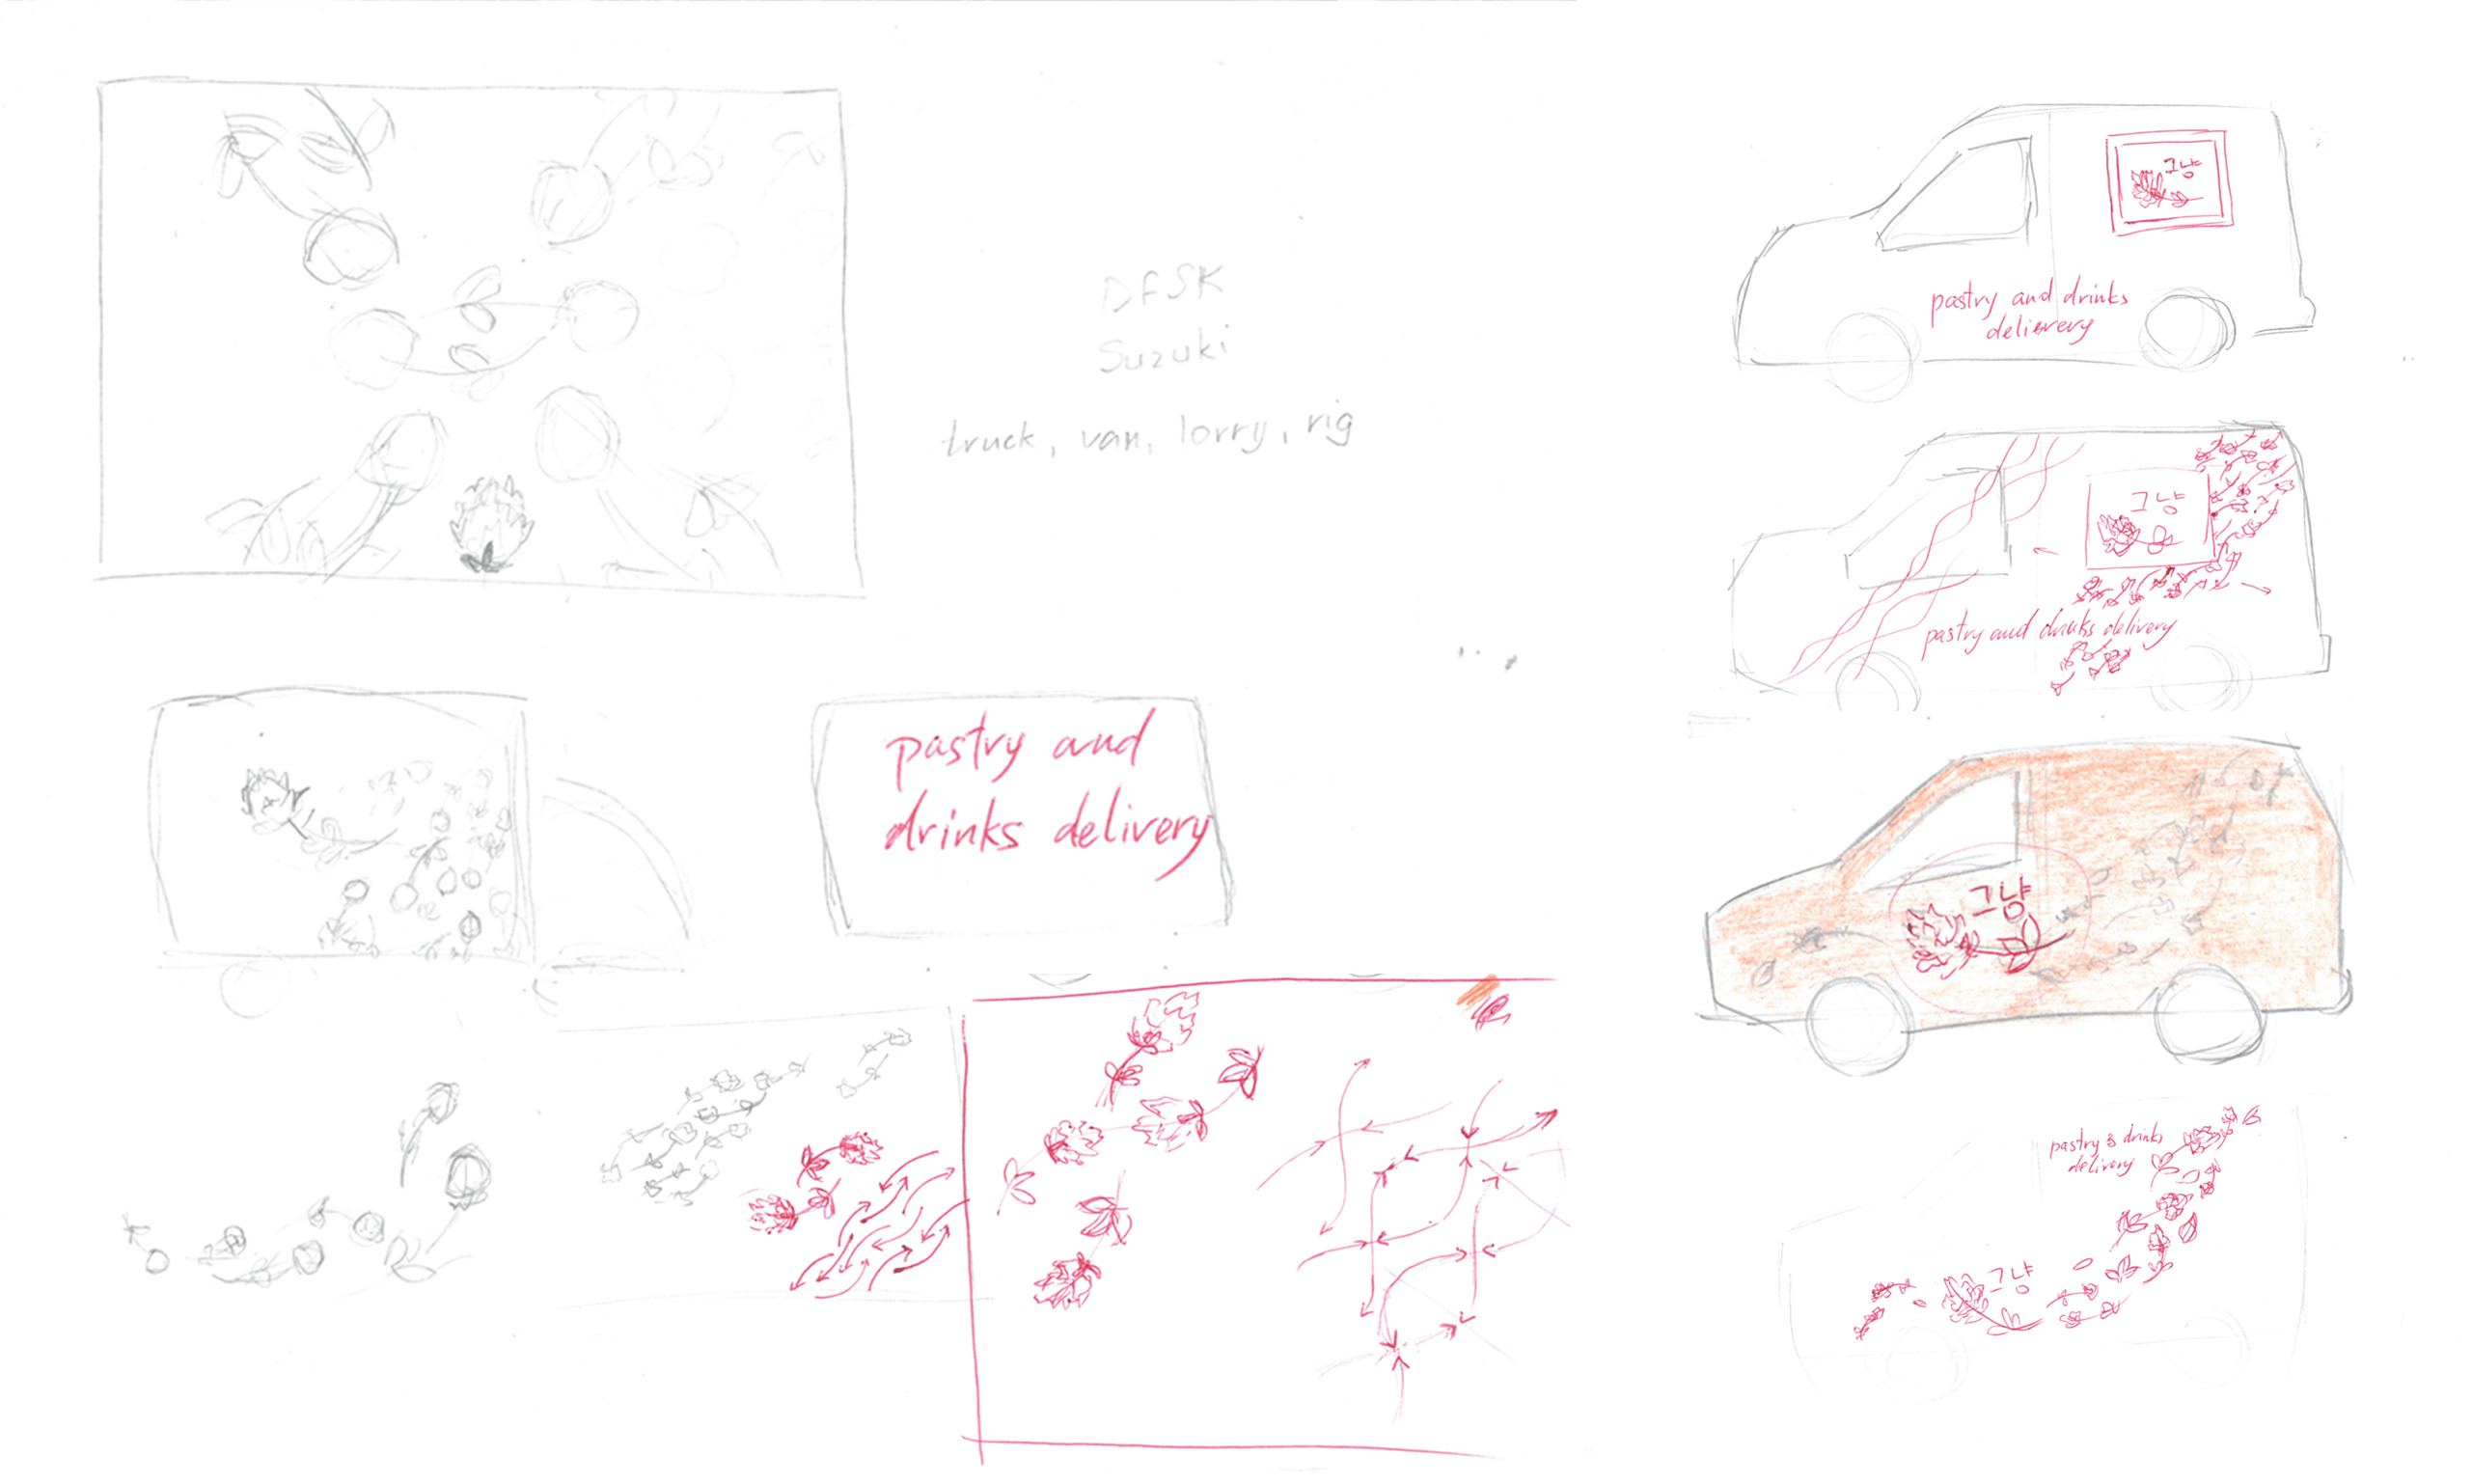 DFSK
Suzuki
truck, van, lorry, rig
pastry and
drinks delivery
그냥
pastry and drinks
delievery
그냥
pastry and drinks delivery
그냥
pastry & drinks
delivery
그냥